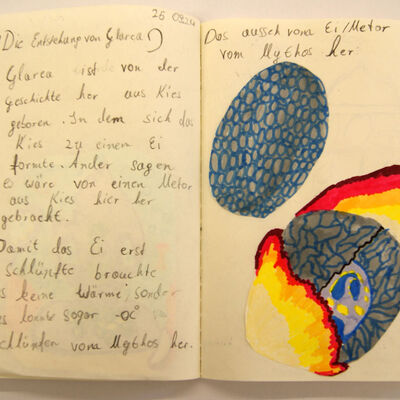 26 09.24
(Die Entstehung von Glarea)
Glarea ist de von der
Geschichte her aus Kies
geboren. In dem sich das
Kies zu einem Ei
formte. Ander sagen
es wäre von einen Metor
aus Kies hier her
gebracht.
Damit das Ei erst
Schlüpfte brauchte
es keine Wärme, sonder
es konnte sogar -0C°
schlüpfen vona Mythos her.
Das aussch vona Ei/Metor
vom Mythos her: